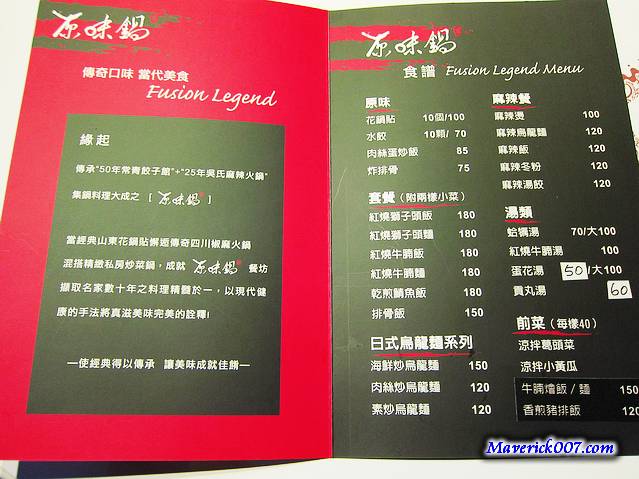 原味鍋
傳奇口味 當代美食
Fusion Legend
緣起
傳承"50年常青餃子館"+"25年吳氏麻辣火鍋"
集鍋料理大成之 [ 原味鍋 ]
當經典山東花鍋貼邂逅傳奇四川椒麻火鍋
混搭精緻私房炒菜鍋，成就 原味鍋 餐坊
擷取名家數十年之料理精髓於一，以現代健
康的手法將真滋美味完美的詮釋!
—使經典得以傳承 讓美味成就佳餚—
原味鍋
食譜 Fusion Legend Menu
原味
花鍋貼 10個/100
水餃 10顆/ 70
肉絲蛋炒飯 85
炸排骨 75
套餐 (附兩樣小菜)
紅燒獅子頭飯 180
紅燒獅子頭麵 180
紅燒牛腩飯 180
紅燒牛腩麵 180
乾煎鯖魚飯 180
排骨飯 150
日式烏龍麵系列
海鮮炒烏龍麵 150
肉絲炒烏龍麵 120
素炒烏龍麵 120
麻辣餐
麻辣燙 100
麻辣烏龍麵 120
麻辣飯 120
麻辣冬粉 120
麻辣湯餃 120
湯類
蛤蠣湯 70/大100
紅燒牛腩湯 100
蛋花湯 50/大100
貢丸湯 60
前菜 (每樣40)
涼拌葛頭菜
涼拌小黃瓜
牛腩燴飯/麵 150
香煎豬排飯 120
Maverick007.com